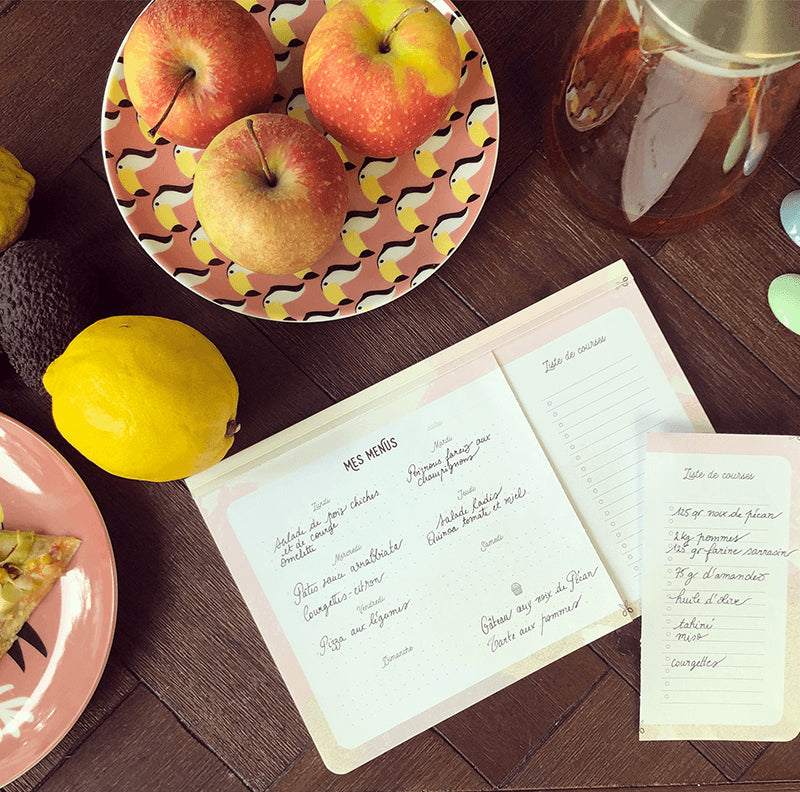 MES MENUS
Lundi
Salade de pois chiches
et de courge
Omelette
Mardi
Poivrons farcis aux
champignons
Mercredi
Pâtes sauce arrabbiata
Courgettes-citron
Jeudi
Salade radis
Quinoa tomate et miel
Vendredi
Pizza aux légumes
Samedi
Dimanche
Gâteau aux noix de Pécan
Tarte aux pommes
Liste de courses
Liste de courses
125 gr noix de pécan
2kg pommes
125 gr farine sarrasin
75 gr d'amandes
huile d'olive
tahiné
miso
courgettes